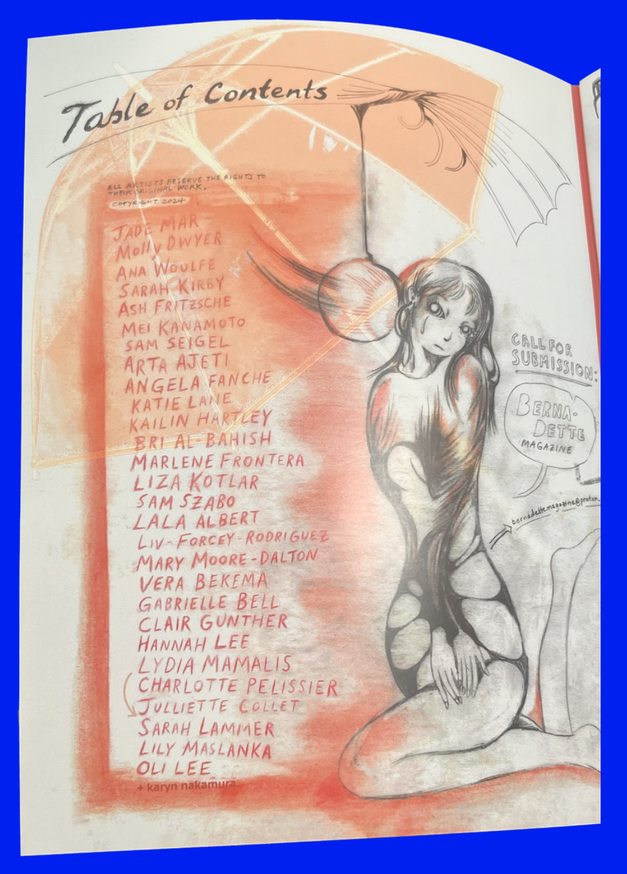 Table of Contents
ALL ARTISTS RESERVE THE RIGHTS TO
THEIR ORIGINAL WORK.
COPYRIGHT 2024
JADE MAR
MOLLY DWYER
ANA WOULFE
SARAH KIRBY
ASH FRITZSCHE
MEI KANAMOTO
SAM SEIGEL
ARTA AJETI
ANGELA FANCHE
KATIE LANE
KAILIN HARTLEY
BRI AL-BAHISH
MARLENE FRONTERA
LIZA KOTLAR
SAM SZABO
LALA ALBERT
LIV-FORCEY-RODRIGUEZ
MARY MOORE-DALTON
VERA BEKEMA
GABRIELLE BELL
CLAIR GUNTHER
HANNAH LEE
LYDIA MAMALIS
CHARLOTTE PELISSIER
JULLIETTE COLLET
SARAH LAMMER
LILY MASLANKA
OLI LEE
+ karyn nakamura
CALL FOR
SUBMISSION:
BERNA-
DETTE
MAGAZINE
bernadettemagazine@proton.